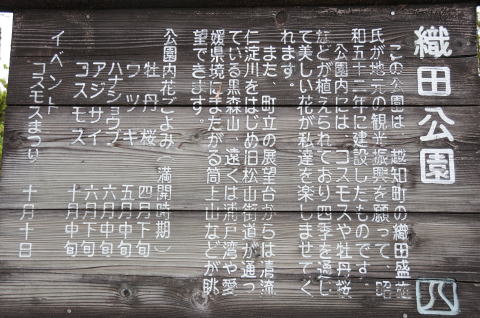 織田公園
この公園は、越知町の織田盛花
氏が地元の観光振興を願って、昭
和五十二年に建設したものです。
公園内には、コスモスや牡丹桜
などが植えられており四季を通じ
て美しい花が私達を楽しませてく
れます。
また、町立の展望台からは清流
仁淀川をはじめ旧松山街道が通っ
ている黒森山、遠くは浦戸湾や愛
媛県境にまたがる筒上山などが眺
望できます。
公園内花ごよみ(満開時期)
牡丹桜 四月下旬
ツツジ 五月中旬
ハナショウブ 六月中旬
アジサイ 六月下旬
コスモス 十月中旬
イベント
コスモスまつり 十月十日